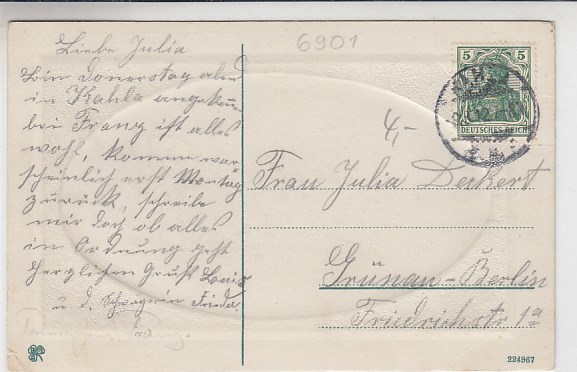 6901
Liebe Julia
bin Donerstag abend
in Kahla angekom
bei Franz ist alles
wohl, kommen war
scheinlich erst Montag
zurück, schreibe
mir doch ob alles
in Ordnung geht
herzlichen Gruß
u. d. Schwägerin Frieda
5 5
DEUTSCHES REICH
4,-
Frau Julia Deckert
Grünau-Berlin
Friedrichstr 1a
224967